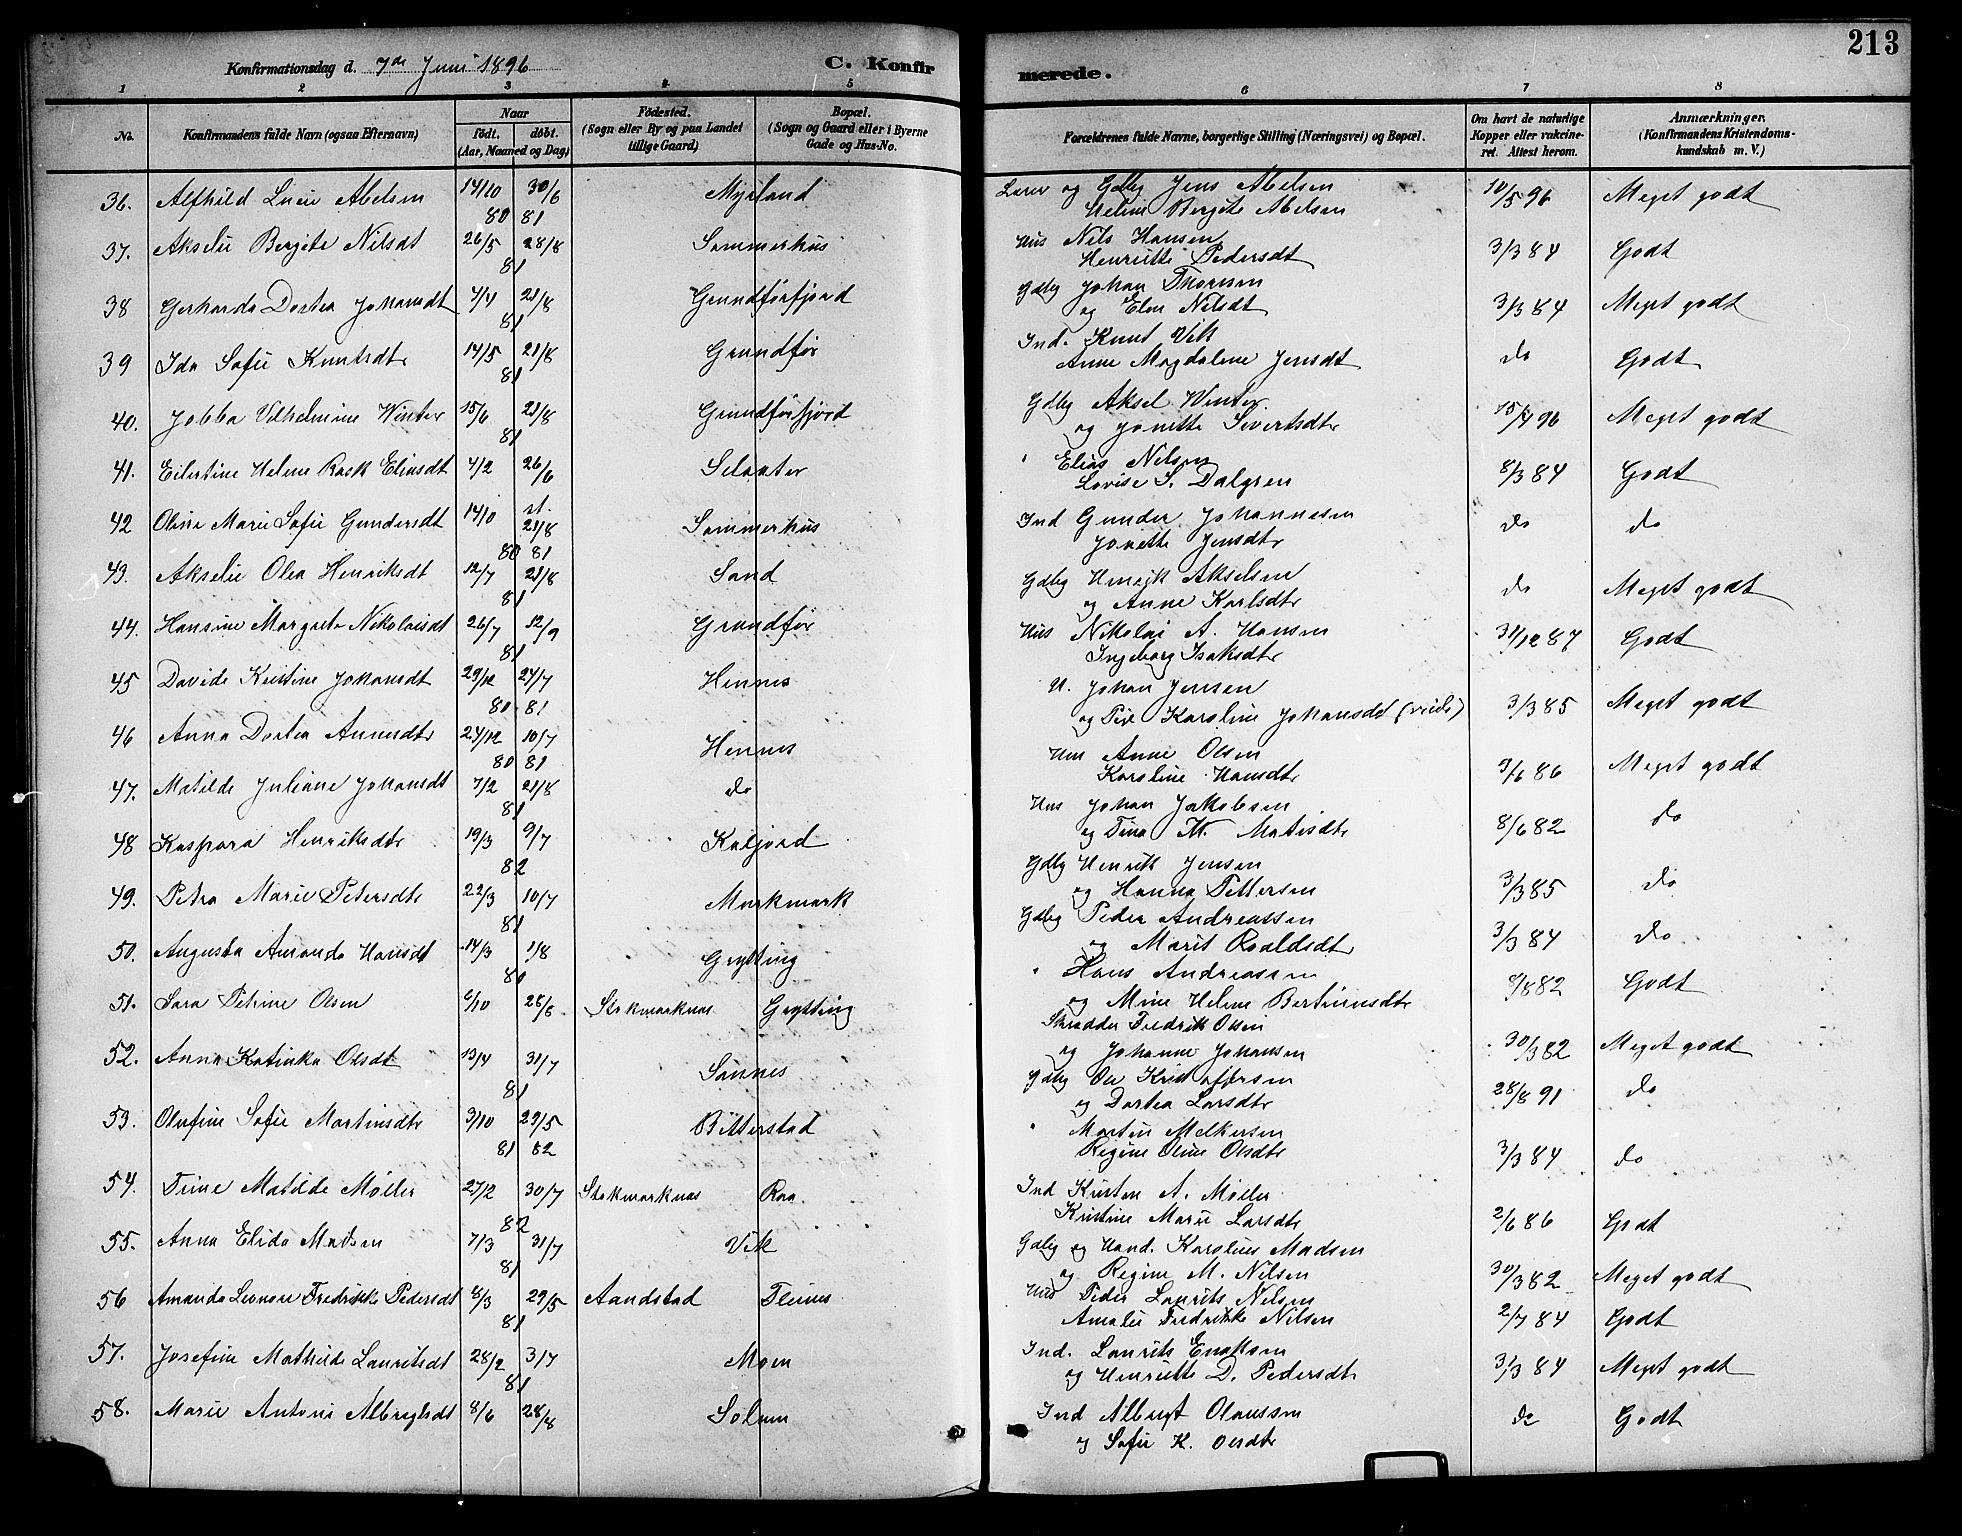 Konfirmationsdag d. 7de Juni 1896 C. Konfirmerede. 213
1 2 3 4 5 6 7 8
No. Konfirmandens fulde Navn (ogsaa Efternavn) Naar födt. döbt. (Aar, Maaned og Dag) Födested. (Sogn eller By og paa Landet tillige Gaard) Bopæl. (Sogn og Gaard eller i Byerne Gade og Hus-No. Forældrenes fulde Navne, borgerlige Stilling (Næringsvei) og Bopæl. Om havt de naturlige Kopper eller vakcineret. Attest herom. Anmærkninger. (Konfirmandens Kristendomskundskab m. V.)
36. Alfhild Lucie Abelsen 14/10 80 30/6 81 Myrland Lærer og Gdbg Jens Abelsen 10/5 96 Meget godt
Meline Bergite Abelsen
37. Akselie Bergite Nilsdt 26/5 28/8 81 Sommerhus Hus Nils Hansen 3/3 84 Godt
Henriette Pedersdt
38 Gerharda Dortea Johansdt 4/4 21/8 81 Grundförfjord Gdbg Johan Thoresen 3/3 84 Meget godt
og Elen Nilsdt
39 Ida Sofie Knutsdtr 14/5 21/8 81 Grundför Ind. Knut Vik do Godt
Anne Magdalene Jensdt
40. Jobba Vilhelmine Winter 15/6 21/8 81 Grundförfjord Gdbg Aksel Winter 15/4 96 Meget godt
og Jonette Sivertsdtr
41. Eilertine Helene Rask Eliasdt 4/2 26/6 Selnater " Elias Nilsen 8/3 84 Godt
Lovise S. Dalgren
42 Oline Marie Sofie Gundersdt 14/10 80 st. 21/8 81 Sommerhus Ind Gunder Johannesen do do
Jonette Jensdtr
43. Akselie Olea Henriksdt 12/7 21/8 81 Sand Gdbg Henrik Akselsen do Meget godt
og Anne Karlsdtr
44. Hansine Margrete Nikolaisdt 26/7 12/9 81 Grundför Hus Nikolai A. Hansen 31/12 87 Godt
Ingeborg Isaksdtr
45 Davida Kristine Johansdt 29/12 80 24/7 81 Hennes H. Johan Jensen 3/3 85 Meget godt
og Karoline Johansdt
46 Anna Dortea Arnesdtr 24/12 80 10/7 81 Hennes Hus Arne Olsen 9/6 86 Meget godt
Karoline Hansdtr
47. Matilde Juliane Johansdt 7/2 21/8 81 do Hus Johan Jakobsen 8/6 82 do
og Tina M. Matisdtr
48 Kaspara Henriksdtr 19/3 9/7 82 Kaljord Gdbg Henrik Jensen 3/3 85 do
og Hanna Pettersen
49. Petra Marie Petersdtr 22/3 10/7 81 Markmark Gdbg Peder Andreassen 3/3 84 do
og Marit Roaldsdtr
50. Augusta Amanda Hansdt 14/3 1/8 81 Grytting " Hans Andreassen 9/8 82 Godt
og Mine Helene Bertinusdtr
51. Sara Petrine Olsen 6/10 28/8 Stokmarknes Grytting Skrædder Fredrik Olsen 30/3 82 Meget godt
og Johanne Johansen
52. Anna Katinka Olsdt 13/4 31/7 81 Sannes Gdbg Ole Kristoffersen 28/8 91 do
og Dortea Larsdtr
53. Olufine Sofie Martinsdtr 3/10 81 29/5 82 Bitterstad " Martin Melkersen 3/3 84 do
Regine Oline Olsdtr
54. Trine Matilde Møller 27/2 30/7 82 Stokmarknes Raa Ind Kristen A. Møller 2/6 86 Godt
Kristine Marie Larsdtr
55. Anna Elida Madsen 7/3 31/7 81 Vik Gdbg og Hand. Karolius Madsen 30/3 82 Meget godt
og Regine M. Nilsen
56 Amanda Leonore Fredrikke Pedersdt 8/3 29/5 81 Aandstad Fleines Hus Peder Laurits Nilsen 2/7 84 Godt
Amalie Fredrikke Nilsen
57. Josefine Mathilde Lauritsdt 28/2 3/7 81 Moen Ind. Laurits Enoksen 3/3 84 Meget godt
og Henriette D. Pedersdtr
58. Marie Antonie Albregtsdt 8/6 28/8 Solum Ind Albregt Olaussen do Godt
og Sofie K. Olsdtr